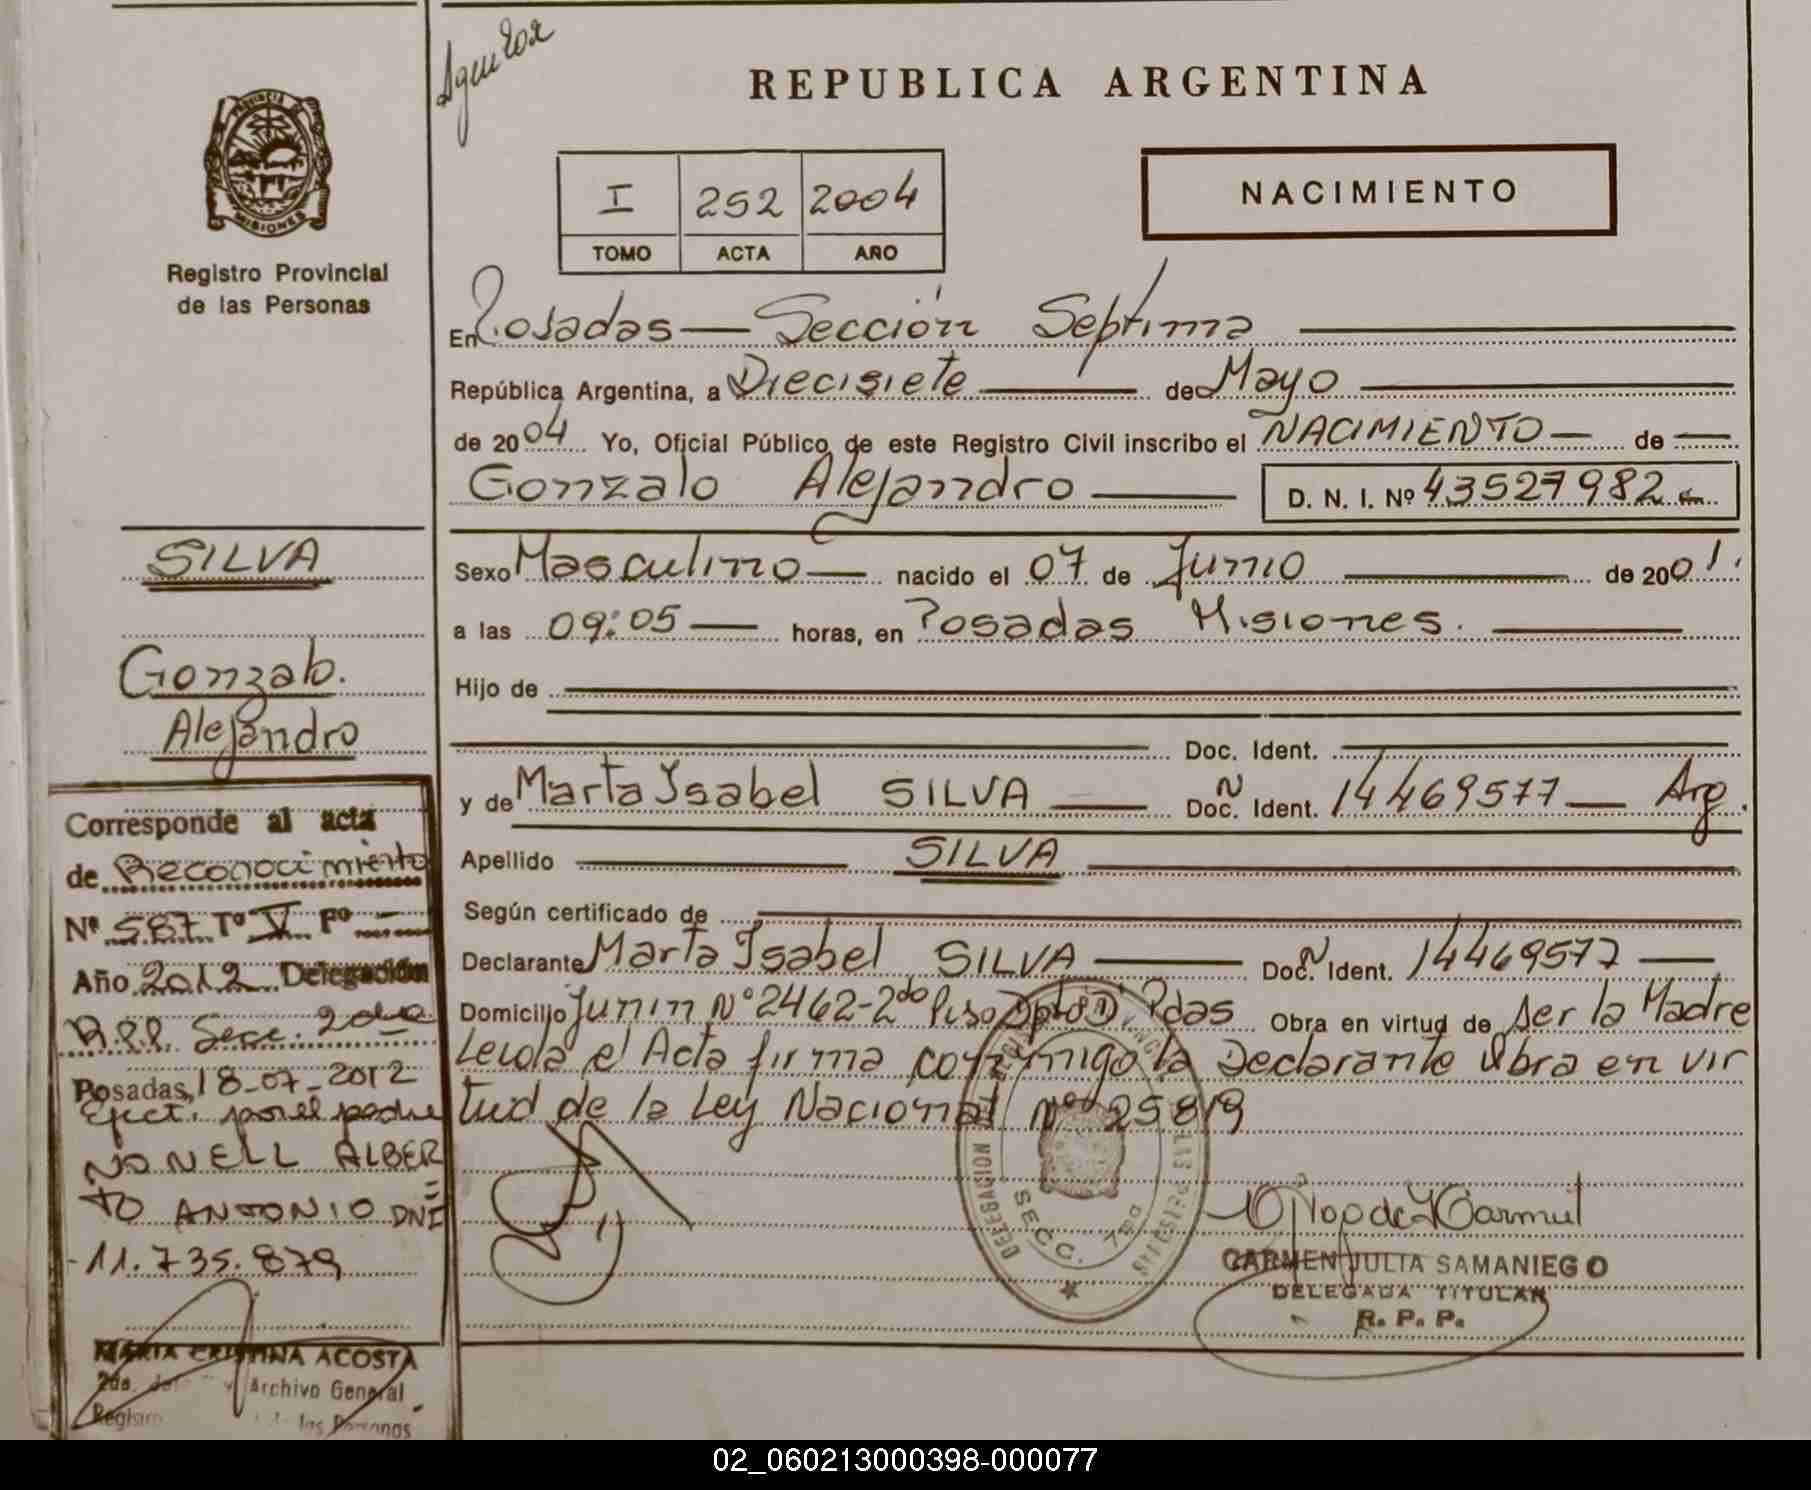 Aguilar
REPUBLICA ARGENTINA
PROVINCIA DE
MISIONES
Registro Provincial
de las Personas
I 252 2004
TOMO ACTA AÑO
NACIMIENTO
En Posadas — Sección Septima
República Argentina, a Diecisiete de Mayo
de 2004 Yo, Oficial Público de este Registro Civil inscribo el NACIMIENTO — de —
Gonzalo Alejandro D. N. I. Nº 43527982
Sexo Masculino — nacido el 07 de Junio de 2001.
a las 09:05 — horas, en Posadas Misiones.
Hijo de
Doc. Ident.
y de Marta Ysabel SILVA — Doc. N Ident. 14469577 — Arg.
Apellido SILVA
Según certificado de
Declarante Marta Ysabel SILVA — Doc. N Ident. 14469577 —
Domicilio Junin Nº 2462-2do Piso Dpto D. Pdas Obra en virtud de ser la Madre
Leida el Acta firma conmigo la Declarante Obra en vir
tud de la Ley Nacional Nº 25819
DELEGACION
SECC. 7ma
CARMEN JULIA SAMANIEGO
DELEGADA TITULAR
R. P. P.
SILVA
Gonzalo.
Alejandro
Corresponde al acta
de Reconocimiento
Nº 587 Tº V Fº —
Año 2012 Delegación
R.P.P. Secc. 2da
Posadas, 18-07-2012
Efect. por el padre
NONELL ALBER
TO ANTONIO DNI
-11.735.879
MARIA CRISTINA ACOSTA
2da. Archivo General
Registro de las Personas
02_060213000398-000077